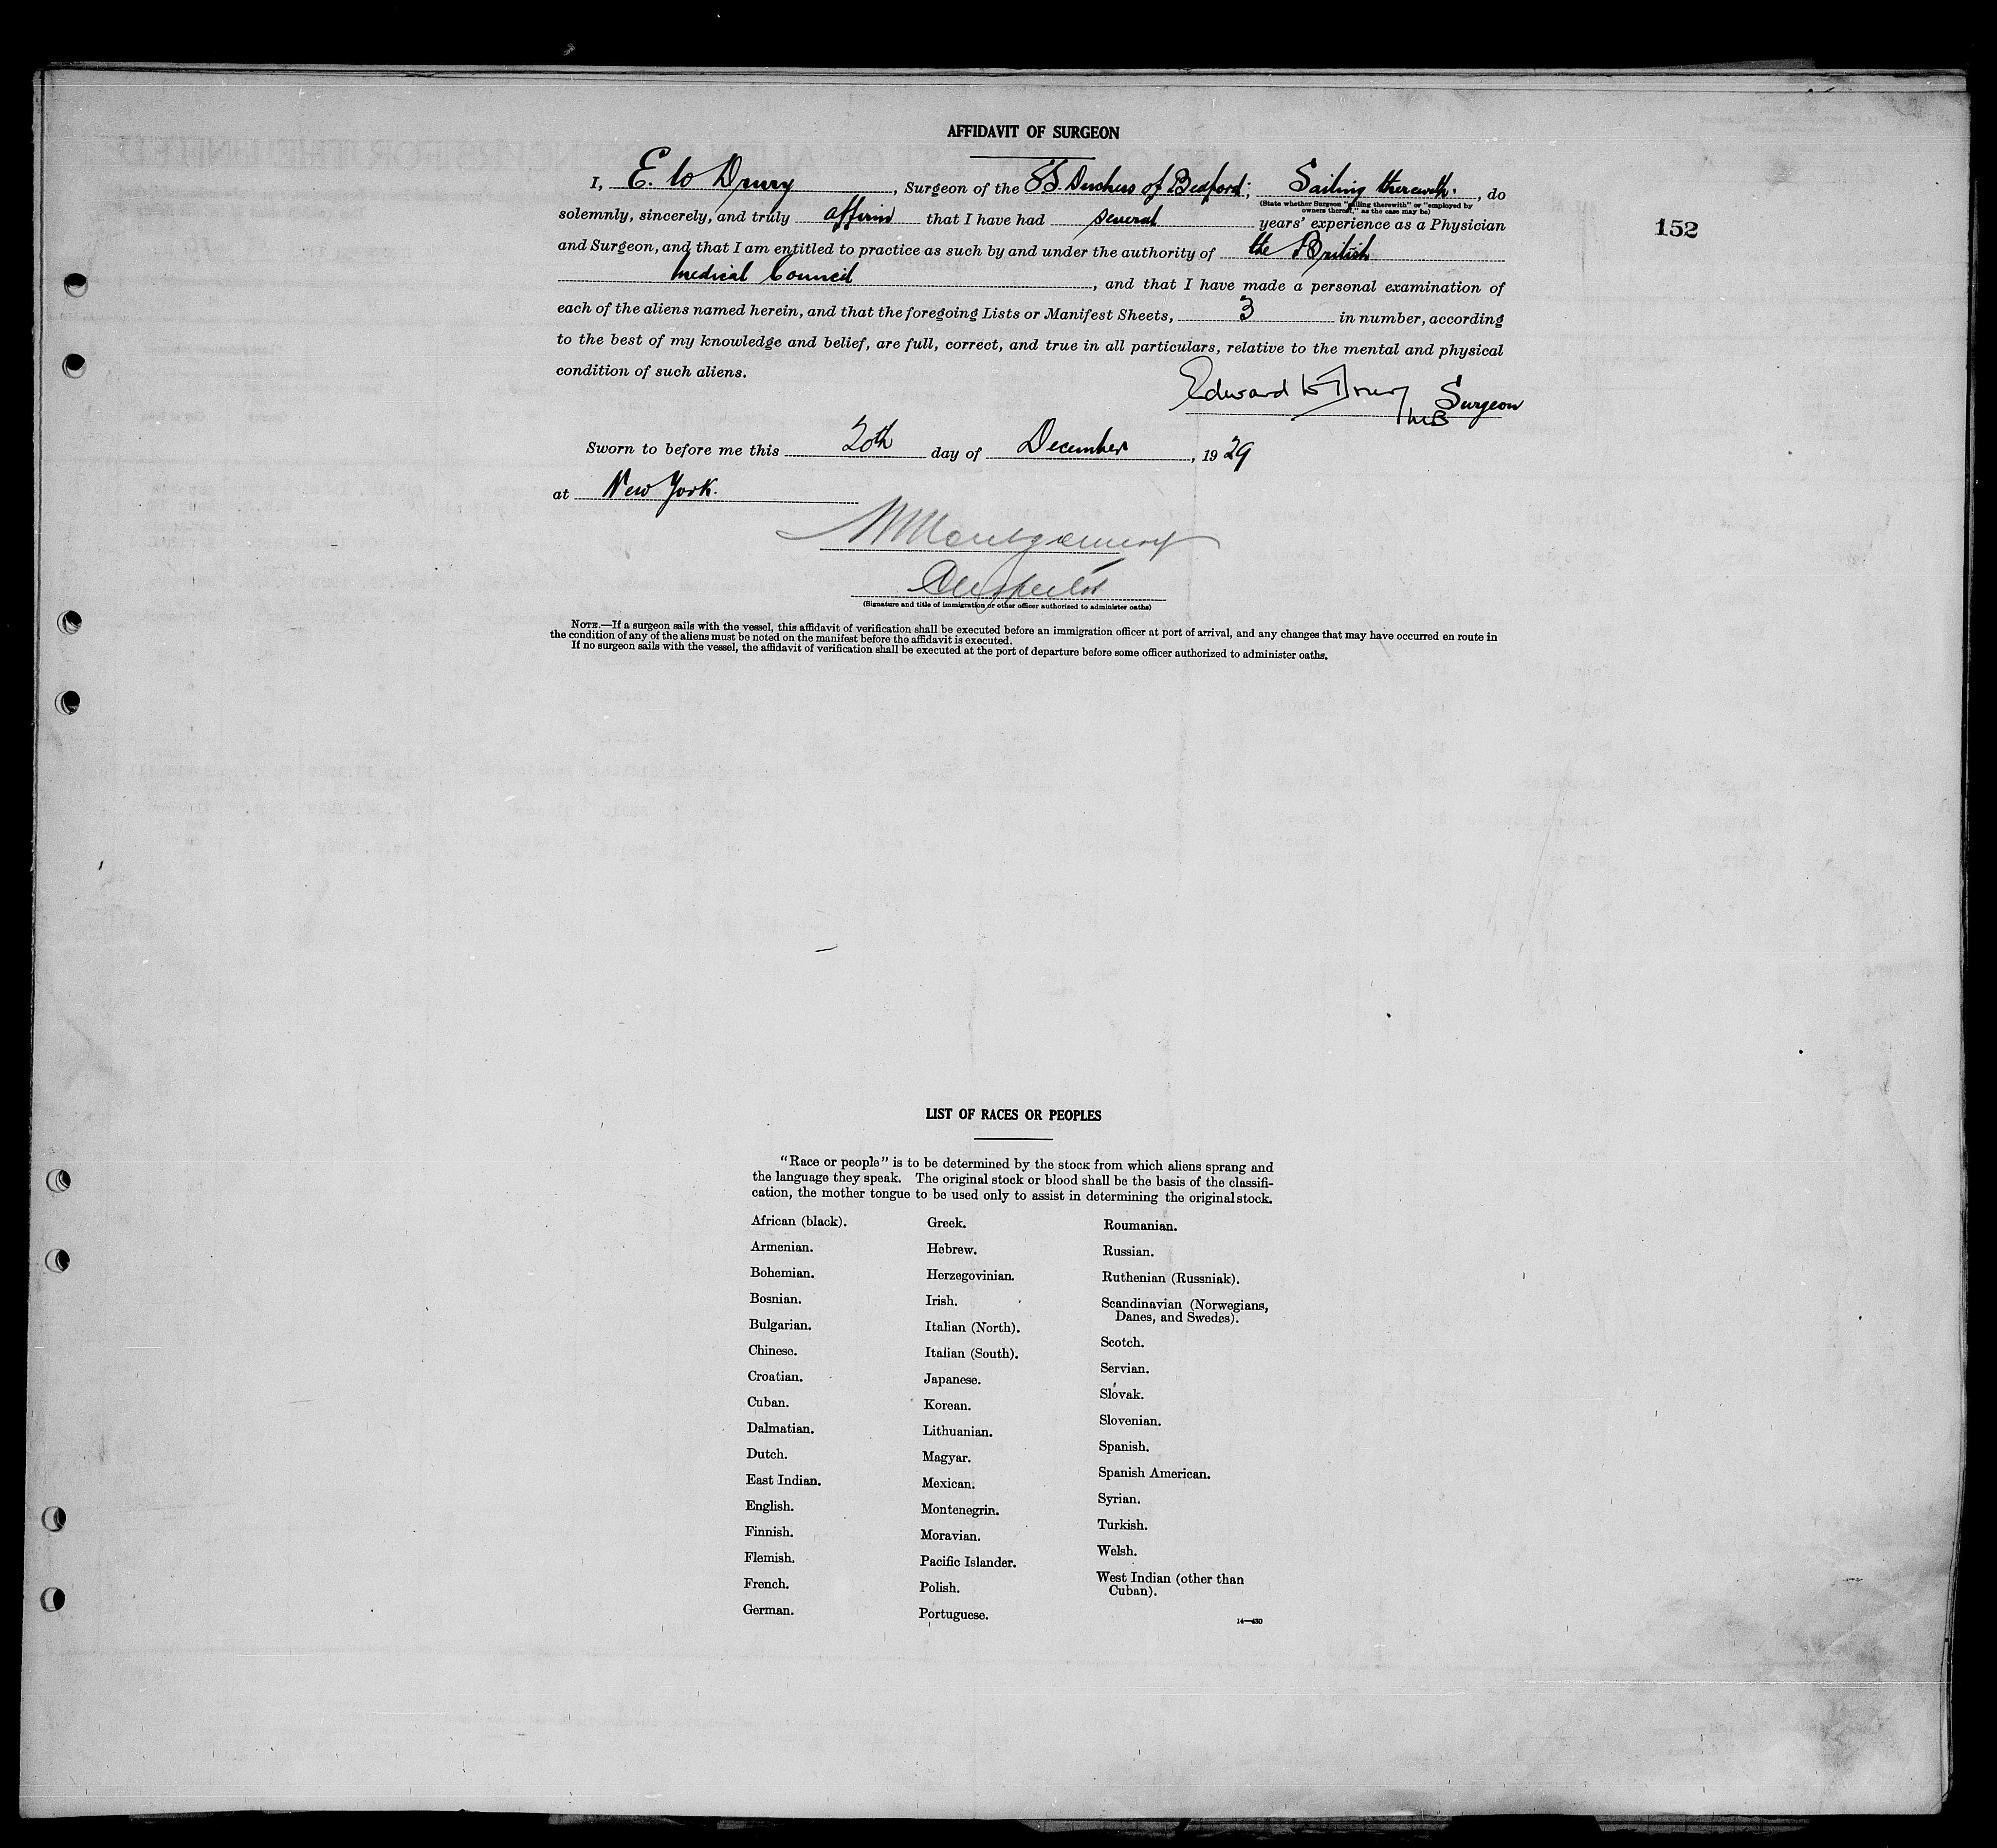 AFFIDAVIT OF SURGEON
I, E. W Drury, Surgeon of the SS. Duchess of Bedford; Sailing therewith., do
(State whether Surgeon "sailing therewith" or "employed by
owners thereof," as the case may be)
solemnly, sincerely, and truly affirm that I have had several years' experience as a Physician
152
and Surgeon, and that I am entitled to practice as such by and under the authority of the British
Medical Council, and that I have made a personal examination of
each of the aliens named herein, and that the foregoing Lists or Manifest Sheets, 3 in number, according
to the best of my knowledge and belief, are full, correct, and true in all particulars, relative to the mental and physical
condition of such aliens.
Edward W Drury MB Surgeon
Sworn to before me this 20th day of December, 1929
at New York.
Montgomery
(Signature and title of immigration or other officer authorized to administer oaths)
NOTE.—If a surgeon sails with the vessel, this affidavit of verification shall be executed before an immigration officer at port of arrival, and any changes that may have occurred en route in
the condition of any of the aliens must be noted on the manifest before the affidavit is executed.
If no surgeon sails with the vessel, the affidavit of verification shall be executed at the port of departure before some officer authorized to administer oaths.
LIST OF RACES OR PEOPLES
"Race or people" is to be determined by the stock from which aliens sprang and
the language they speak. The original stock or blood shall be the basis of the classifi-
cation, the mother tongue to be used only to assist in determining the original stock.
African (black).
Armenian.
Bohemian.
Bosnian.
Bulgarian.
Chinese.
Croatian.
Cuban.
Dalmatian.
Dutch.
East Indian.
English.
Finnish.
Flemish.
French.
German.
Greek.
Hebrew.
Herzegovinian.
Irish.
Italian (North).
Italian (South).
Japanese.
Korean.
Lithuanian.
Magyar.
Mexican.
Montenegrin.
Moravian.
Pacific Islander.
Polish.
Portuguese.
Roumanian.
Russian.
Ruthenian (Russniak).
Scandinavian (Norwegians,
Danes, and Swedes).
Scotch.
Servian.
Slovak.
Slovenian.
Spanish.
Spanish American.
Syrian.
Turkish.
Welsh.
West Indian (other than
Cuban).
14—430